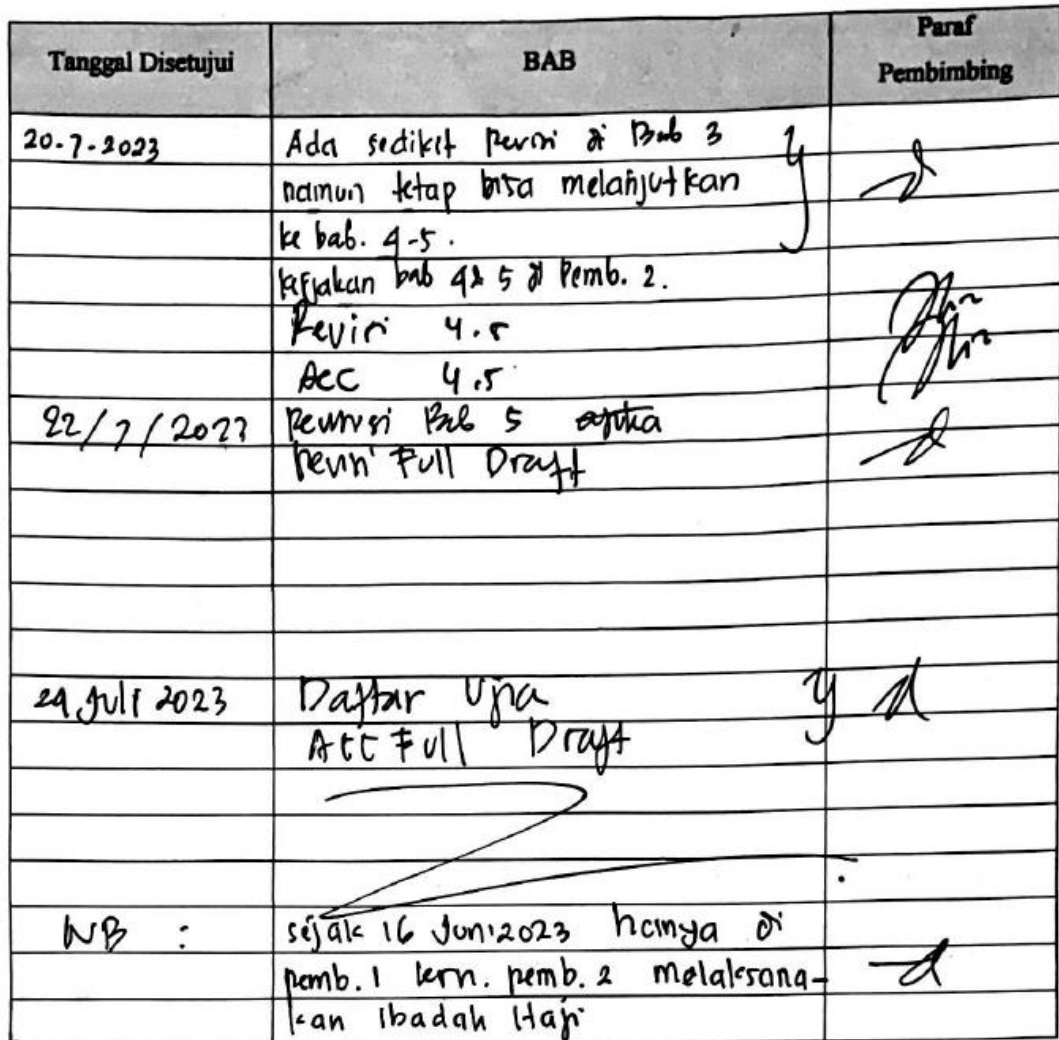 Tanggal Disetujui BAB Paraf
Pembimbing
20-7-2023 Ada sedikit revisi di Bab 3
namun tetap bisa melanjutkan
ke bab. 4-5.
kerjakan bab 4& 5 di Pemb. 2.
Revisi 4.5
Acc 4.5
22/7/2023 Bab 5
revisi Full Draft
24 Juli 2023 Daftar Ujia
Acc Full Draft
NB : sejak 16 Juni 2023 hanya di
pemb. 1 krn. pemb. 2 melaksana-
kan Ibadah Haji